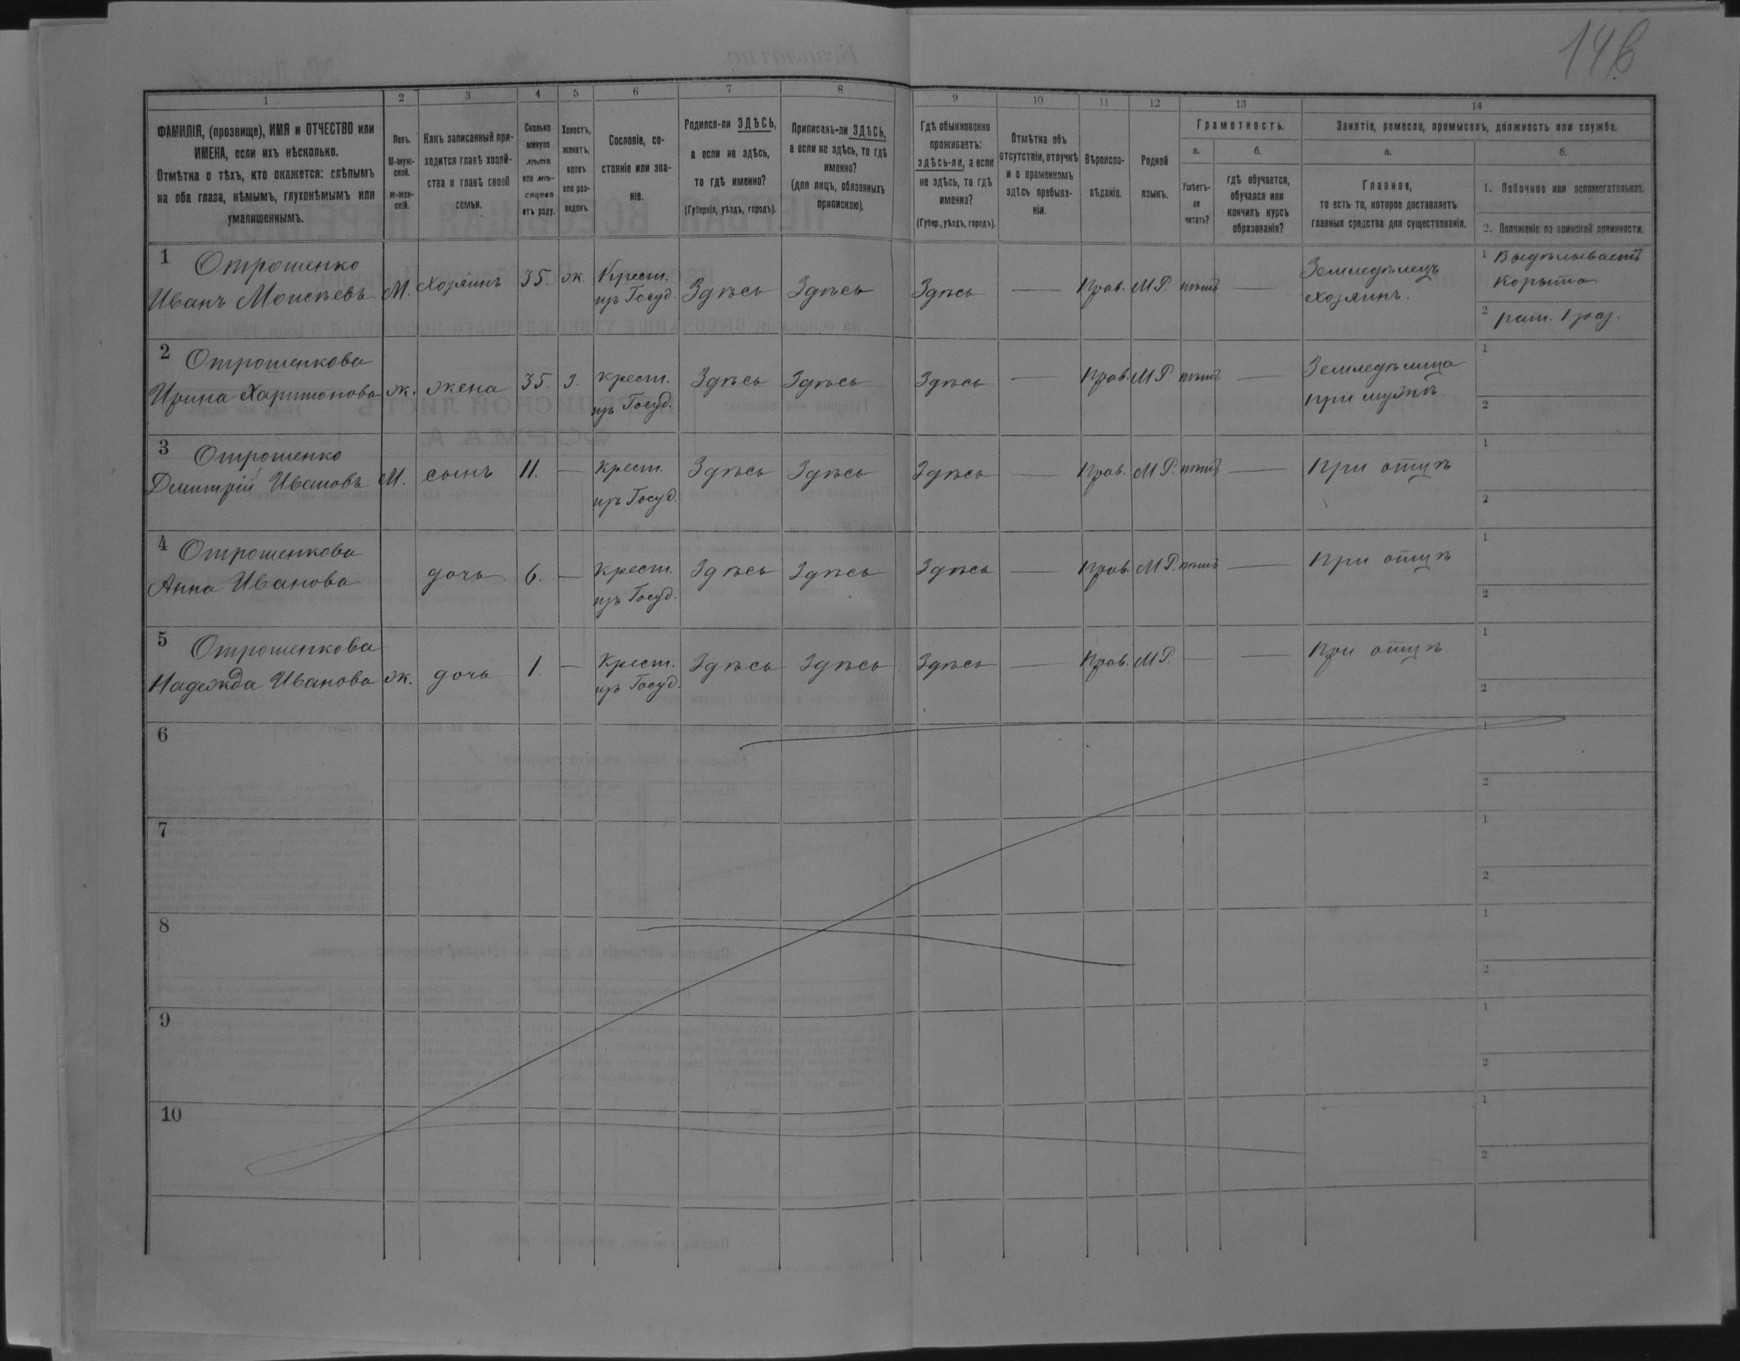 146
1 2 3 4 5 6 7 8 9 10 11 12 13 14
ФАМИЛІЯ, (прозвище), ИМЯ и ОТЧЕСТВО или
ИМЕНА, если ихъ нѣсколько.
Отмѣтка о тѣхъ, кто окажется: слѣпымъ
на оба глаза, нѣмымъ, глухонѣмымъ или
умалишеннымъ.
Полъ.
М-муж-
ской.
ж-жен-
скій.
Какъ записанный при-
ходится главѣ хозяй-
ства и главѣ своей
семьи.
Сколько
минуло
лѣтъ
или мѣ-
сяцевъ
отъ роду.
Холостъ,
женатъ,
вдовъ
или раз-
веденъ.
Сословіе, со-
стояніе или зва-
ніе.
Родился-ли ЗДѢСЬ,
а если не здѣсь,
то гдѣ именно?
(Губернія, уѣздъ, городъ).
Приписанъ-ли ЗДѢСЬ,
а если не здѣсь, то гдѣ
именно?
(для лицъ, обязанныхъ
припискою).
Гдѣ обыкновенно
проживаетъ:
здѣсь-ли, а если
не здѣсь, то гдѣ
именно?
(Губер., уѣздъ, городъ).
Отмѣтка объ
отсутствіи, отлучкѣ
и о временномъ
здѣсь пребыва-
ніи.
Вѣроиспо-
вѣданіе.
Родной
языкъ.
Грамотность.
а.
Умѣетъ-
ли
читать?
б.
гдѣ обучается,
обучался или
кончилъ курсъ
образованія?
Занятіе, ремесло, промыселъ, должность или служба.
а.
Главное,
то есть то, которое доставляетъ
главныя средства для существованія.
б.
1. Побочное или вспомогательное.
2. Положеніе по воинской повинности.
1 Отрошенко
Иванъ Моисѣевъ М. Хозяинъ 35. ж. Крест. изъ Госуд. Здѣсь Здѣсь Здѣсь — Прав. М.Р. нѣтъ — Земледѣлецъ хозяинъ. 1 Выдѣлываетъ
корыта
2 рат. 1 раз.
2 Отрошенкова
Ирина Харитонова ж. жена 35. з. крест. изъ Госуд. Здѣсь Здѣсь Здѣсь — Прав. М.Р. нѣтъ — Земледѣлица при мужѣ 1
2
3 Отрошенко
Дмитрій Ивановъ М. сынъ 11. — крест. изъ Госуд. Здѣсь Здѣсь Здѣсь — Прав. М.Р. нѣтъ — При отцѣ 1
2
4 Отрошенкова
Анна Иванова дочь 6. — крест. изъ Госуд. Здѣсь Здѣсь Здѣсь — Прав. М.Р. нѣтъ — При отцѣ 1
2
5 Отрошенкова
Надежда Иванова ж. дочь 1. — Крест. изъ Госуд. Здѣсь Здѣсь Здѣсь — Прав. М.Р. — — При отцѣ 1
2
6 1
2
7 1
2
8 1
2
9 1
2
10 1
2